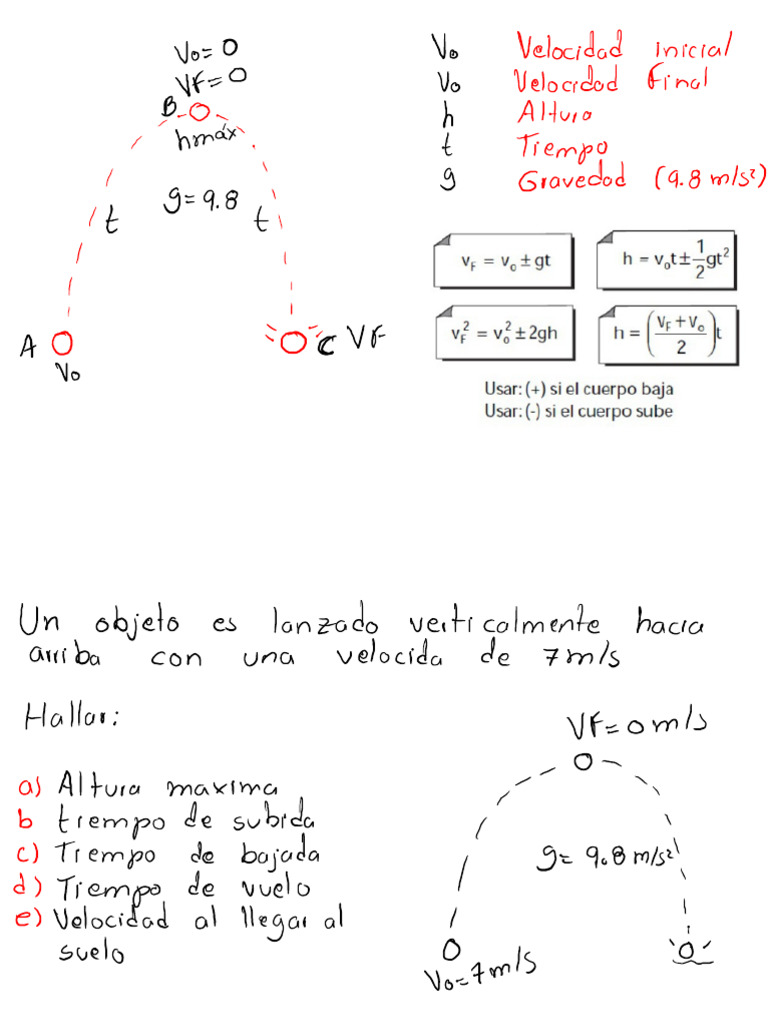 Vo = 0
VF = 0
B
hmáx
g = 9.8
t
t
A
Vo
C VF
Vo Velocidad inicial
Vo Velocidad Final
h Altura
t Tiempo
g Gravedad (9.8 m/s²)
v_F = v_o ± gt
h = v_o t ± 1/2 gt²
v_F² = v_o² ± 2gh
h = ((v_F + v_o)/2) t
Usar: (+) si el cuerpo baja
Usar: (-) si el cuerpo sube
Un objeto es lanzado verticalmente hacia
arriba con una velocida de 7 m/s
Hallar:
a) Altura maxima
b tiempo de subida
c) Tiempo de bajada
d) Tiempo de vuelo
e) Velocidad al llegar al
suelo
VF = 0 m/s
g = 9.8 m/s²
Vo = 7 m/s